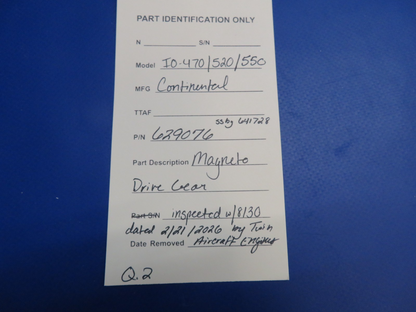 PART IDENTIFICATION ONLY
N S/N
Model IO-470/520/550
MFG Continental
TTAF
SSBy 641728
P/N 629076
Part Description Magneto
Drive Gear
Part S/N inspected w/8130
dated 2/21/2026 by Twin
Date Removed Aircraft Engines
Q.2